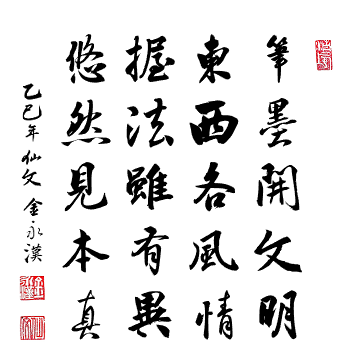 筆墨開文明
東西各風情
握法雖有異
悠然見本真
乙巳年仙文金永漢